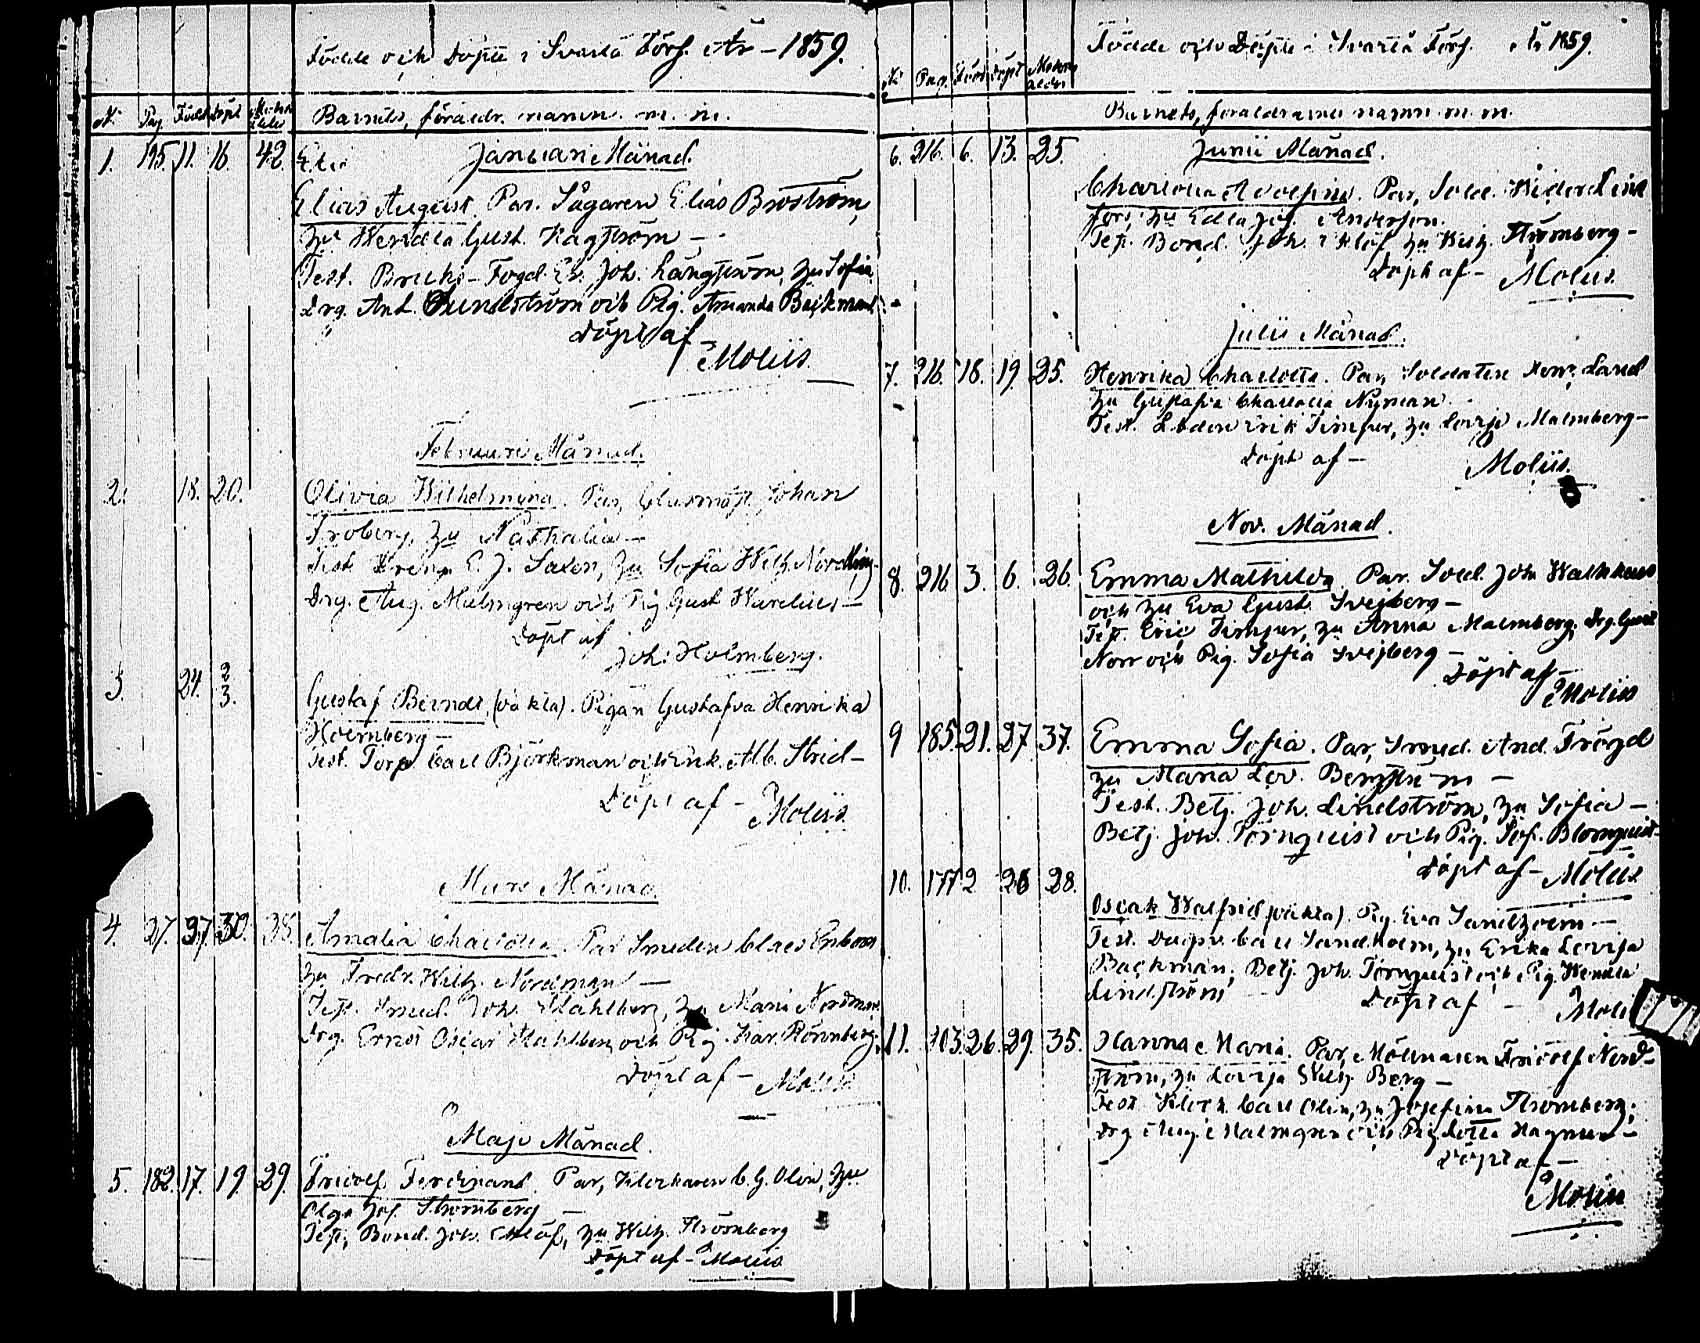 Födde och Döpte i Svartå Förs. År - 1859.
No. Pag. Född döpt Moderns ålder Barnets, föräldr. namn. m. m.
Januari Månad.
1. 195. 11. 16. 42. Eli
Elias August. Par. Sågaren Elias Broström,
hu Wendla Gust. Hagström -
Test. Bruks-Fogd. Er. Joh. Långström, hu Sofia
Drg. And. Sundström och Pig. Amanda Bäckman
Döpt af
Moliis.
Februari Månad.
2. 18. 20. Olivia Wilhelmina. Par, Glasmäst. Johan
Froberg, hu Nathalia -
Test. E. J. Saxen, hu Sofia Wilh. Nordling.
Drg. Aug. Malmgren och Pig Gust Warelius -
Döpt af
Joh. Holmberg.
3. 24. 2/3. Gustaf Berndt, (oäkta). Pigan Gustafva Henrika
Holmberg -
Test. Torp. Carl Björkman och Enk. Alb. Strid -
Döpt af - Moliis
Mars Månad.
4. 27. 27. 30. 35. Amalia Charlotta. Par Smeden Claes Enbom
hu Fredr. Wilh. Nordman -
Test. Smed. Joh. Ståhlberg, hu Maria Nordman
Drg. Ernst Oscar Stahlberg och Pig. Kar. Rönnberg.
Döpt af - Moliis
Maji Månad.
5. 182. 17. 19. 29. Fridolf Ferdinand. Par, Klockaren C. G. Olin, hu
Olga Jos. Strömberg -
Test. Bond. Joh. Eklöf, hu Wilh. Strömberg
Döpt af - Moliis
Födde och Döpte i Svartå Förs. År 1859.
No Pag. Född Döpt Moderns ålder Barnets, föräldrarnes namn m. m.
Junii Månad.
6. 216. 6. 13. 25. Charlotta Adolfina. Par, Sold. Widerd Lind
fors, hu Edla Jos. Andersson.
Test. Bond. Joh. Eklöf hu Wilh. Strömberg -
Döpt af - Moliis.
Julii Månad.
7. 216. 18. 19. 25. Henrika Charlotta. Par, Soldaten Henr. Land
hu Gustafva Charlotta Nyman
Test. Erik Timper, hu Lovisa Malmberg -
Döpt af - Moliis.
Nov. Månad.
8. 216. 3. 6. 26. Emma Mathilda. Par. Sold. Joh.
och hu Eva Gust. Svejberg -
Test. Eric Timper, hu Anna Malmberg. Drg. Gust
Norr och Pig. Sofia Svejberg -
Döpt af -
Moliis
9 185. 21. 27. 37. Emma Sofia. Par, Smed. And. Frögd
hu Maria Lov. Bergström -
Test. Betj. Joh. Lindström, hu Sofia -
Betj. Joh. Törnquist och Pig. Sof. Blomquist -
Döpt af - Moliis
10. 177 2 26 28. Oscar Walfrid (oäkta). Pig. Eva Sandholm -
Test. Carl Sandholm, hu Erika Lovisa
Backman, Betj. Joh. Törnquist och Pig Wendla
Lindström Döpt af - Moli
11. 103. 26. 29. 35. Hanna Maria. Par, Mölnaren Fridolf Nord-
ström, hu Lovisa Wilh. Berg -
Test. Klock. Carl Olin, hu Josefina Strömberg;
Drg Aug. Malmgren och Pig Lotta Magnus -
Döpt af -
Moliis